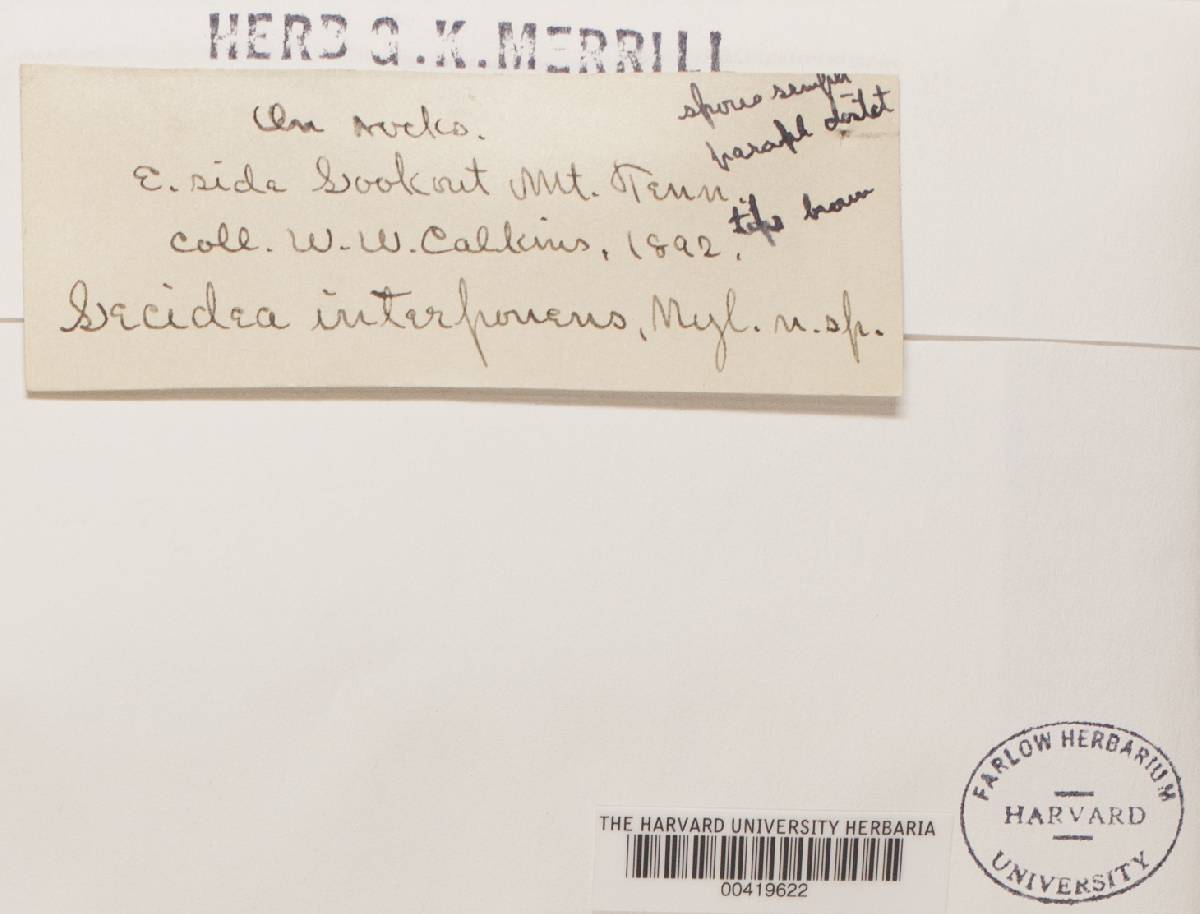 HERB G.K.MERRILL
On rocks.
E. side Lookout Mt. Tenn.
coll. W.W. Calkins, 1892.
Lecidea interponens, Nyl. n. sp.
spores simple
paraph distct
tips brown
THE HARVARD UNIVERSITY HERBARIA
00419622
FARLOW HERBARIUM
HARVARD
UNIVERSITY